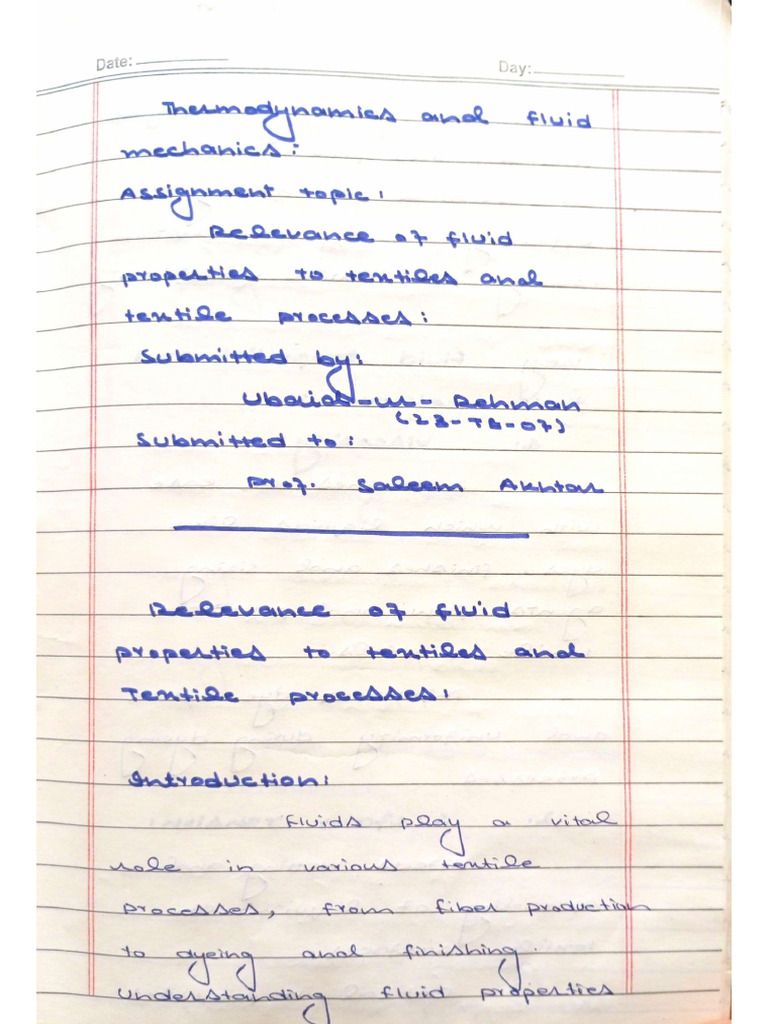 Date:
Day:
Thermodynamics and fluid
mechanics:
Assignment topic:
Relevance of fluid
properties to textiles and
textile processes:
Submitted by:
Ubaid-ur-Rehman
(23-TE-07)
Submitted to:
Prof. Saleem Akhtar
Relevance of fluid
properties to textiles and
Textile processes:
Introduction:
Fluids play a vital
role in various textile
processes, from fiber production
to dyeing and finishing.
Understanding fluid properties